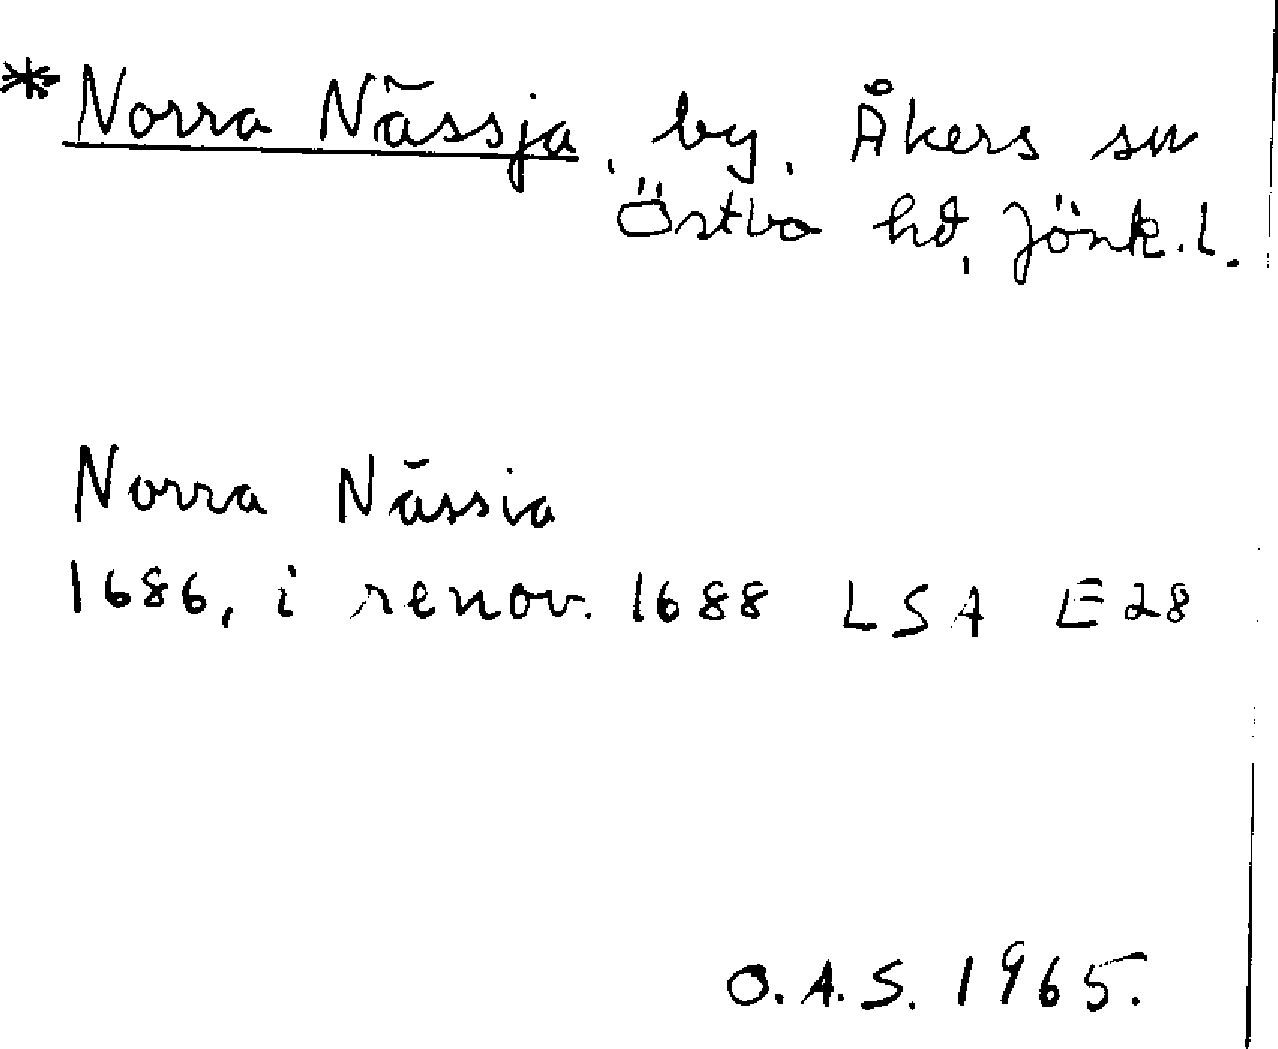 *Norra Nässja, by, Åkers sn
Östbo hd, Jönk.l.
Norra Nässia
1686, i renov. 1688 LSA E28
O.A.S. 1965.